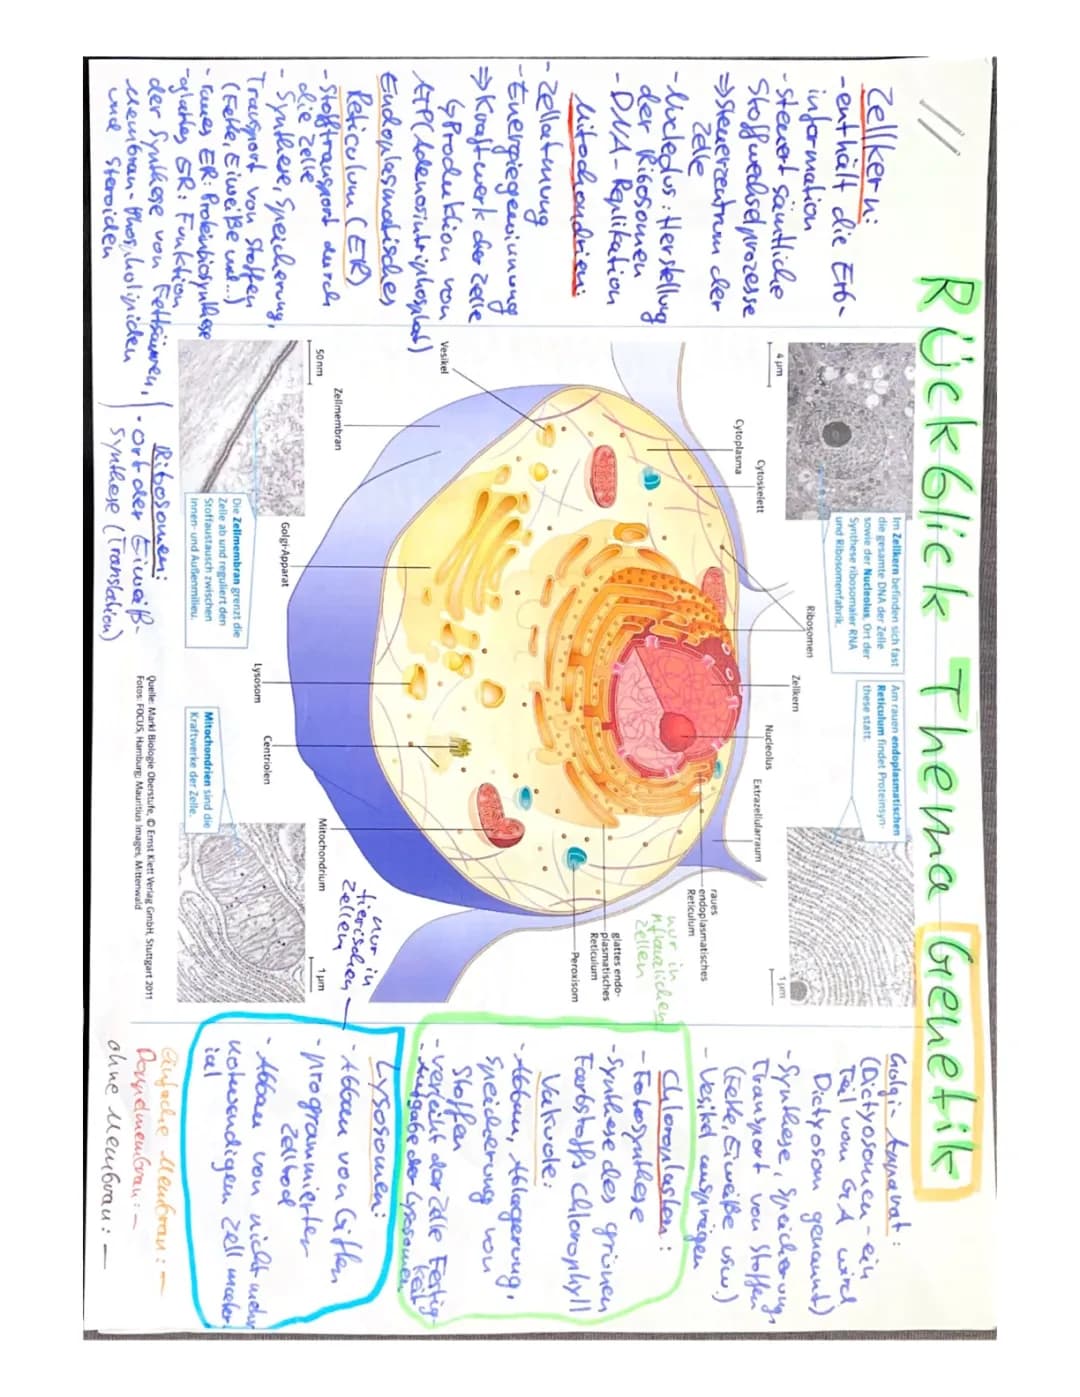 Rückblick Thema Genetik
Zellkern:
- enthält die Erb-
information
- steuert sämtliche
Stoffwechselprozesse
⇒ Steuerzentrum der
Zelle
- Nucleolus: Herstellung
der Ribosomen
- DNA-Replikation
Mitochondrien:
- Zellatmung
- Energiegewinnung
⇒ Kraftwerk der Zelle
↳ Produktion von
ATP (Adenosintriphosphat)
Endoplasmatisches
Reticulum (ER)
- Stofftransport durch
die Zelle
- Synthese, Speicherung,
Transport von Stoffen
(Fette, Eiweiße usw...)
- raues ER: Proteinbiosynthese
- glattes ER: Funktion
der Synthese von Fettsäuren,
Membran-Phospholipiden
und Steroiden
Ribosomen:
- Ort der Eiweiß-
synthese (Translation)
4 µm
Im Zellkern befinden sich fast
die gesamte DNA der Zelle
sowie der Nucleolus, Ort der
Synthese ribosomaler RNA
und Ribosomenfabrik.
Am rauen endoplasmatischen
Reticulum findet Proteinsyn-
these statt.
1 µm
Cytoplasma
Cytoskelett
Ribosomen
Zellkern
Nucleolus
Extrazellularraum
raues
endoplasmatisches
Reticulum
nur in
pflanzlichen
Zellen
glattes endo-
plasmatisches
Reticulum
Peroxisom
Vesikel
Zellmembran
Golgi-Apparat
Lysosom
Centriolen
Mitochondrium
nur in
tierischen
Zellen
50 nm
Die Zellmembran grenzt die
Zelle ab und reguliert den
Stoffaustausch zwischen
Innen- und Außenmilieu.
Mitochondrien sind die
Kraftwerke der Zelle.
1 µm
Quelle: Markl Biologie Oberstufe, © Ernst Klett Verlag GmbH, Stuttgart 2011
Fotos: FOCUS, Hamburg; Mauritius images, Mittenwald
Golgi-Apparat:
(Dictyosomen - ein
Teil vom GA wird
Dictyosom genannt)
- Synthese, Speicherung,
Transport von Stoffen
(Fette, Eiweiße usw.)
- Vesikel
Chloroplasten:
- Fotosynthese
- Synthese des grünen
Farbstoffs Chlorophyll
Vakuole:
- Abbau, Ablagerung,
Speicherung von
Stoffen
- verleiht der Zelle Festig-
keit
- Aufgabe der Lysosomen
Lysosomen:
- Abbau von Giften
- programmierter
Zelltod
- Abbau von nicht mehr
notwendigen Zellmater-
ial
Einfache Membran: —
Doppelmembran: —
ohne Membran: —